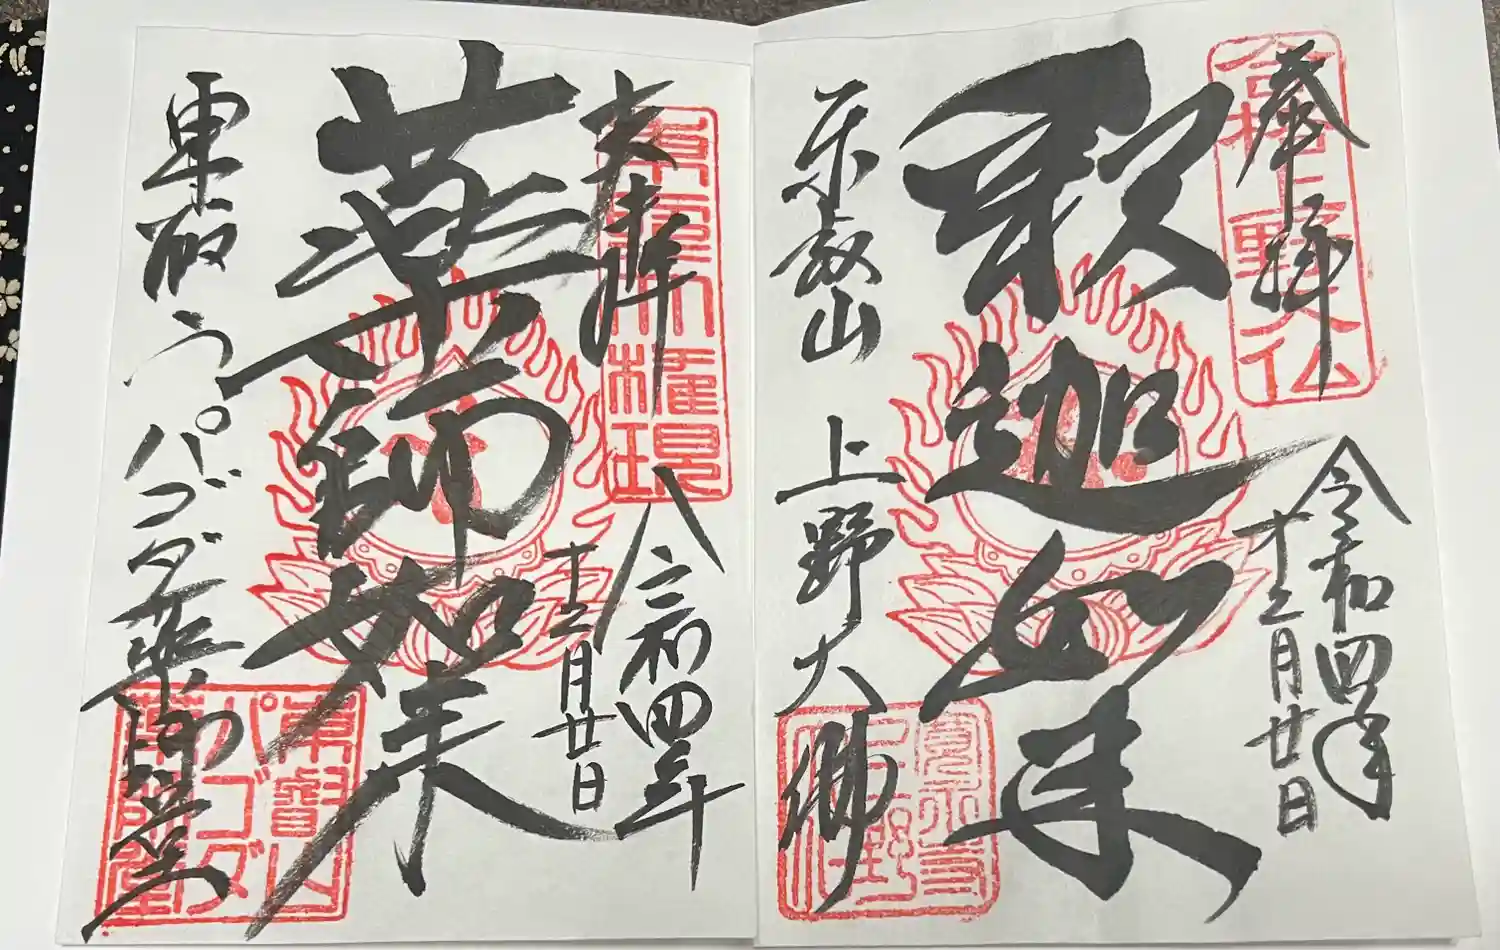 奉拝
令和四年
十二月廿日
釈迦如来
東叡山
上野大佛
合格上野大仏
寛永寺
奉拝
令和四年
十二月廿日
薬師如来
東叡山
パゴダ薬師堂
東照大権現
東叡山
パゴダ
薬師堂